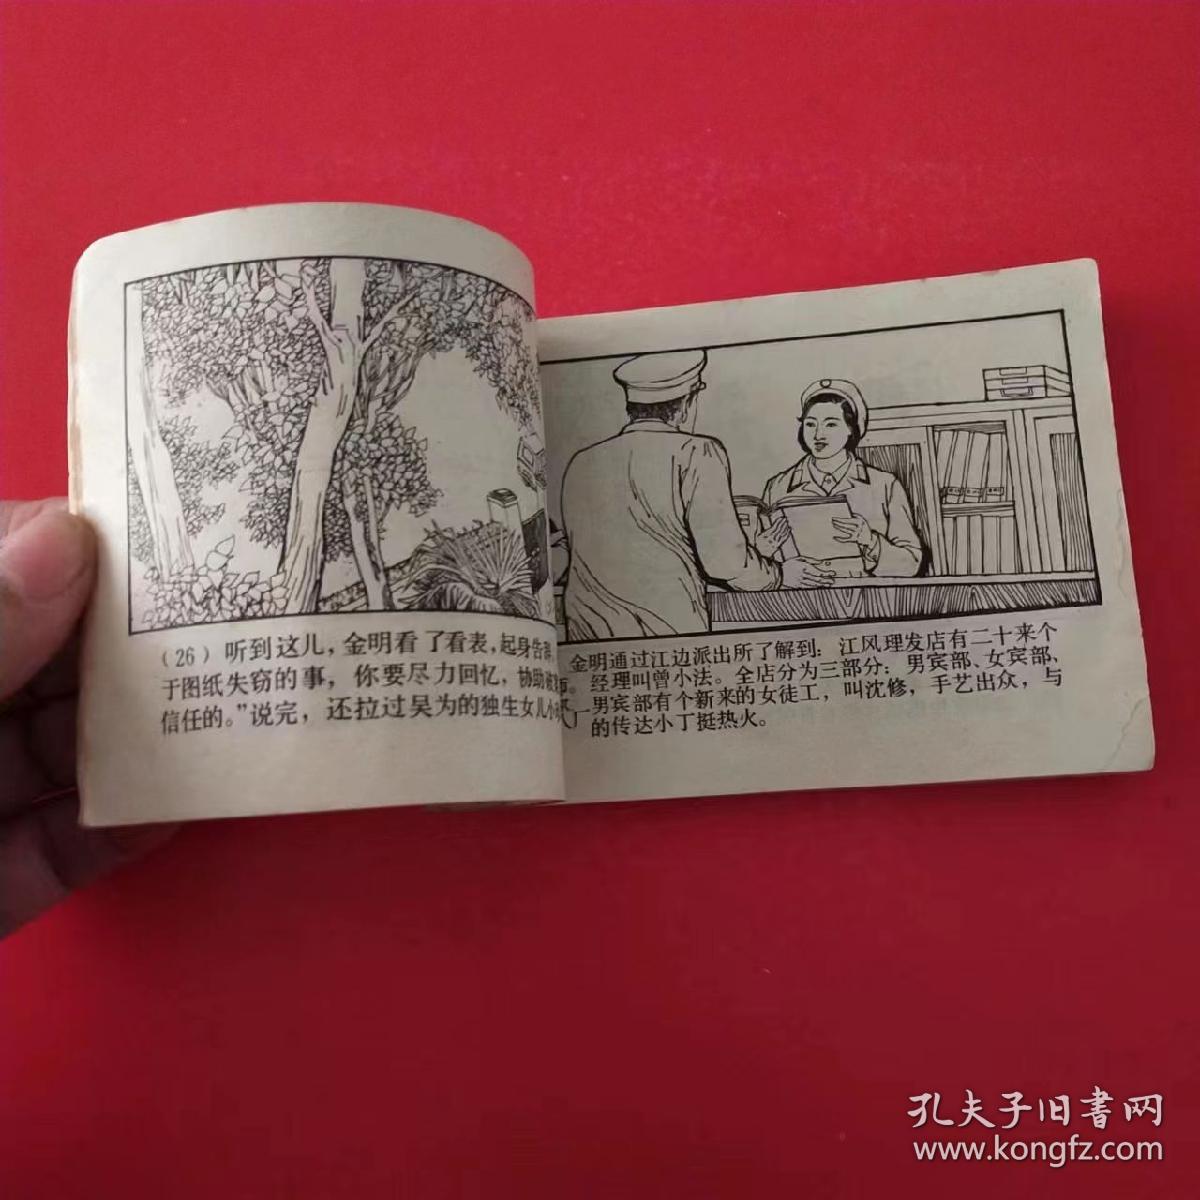 (26) 听到这儿，金明看了看表，起身告
于图纸失窃的事，你要尽力回忆，协助
信任的。”说完，还拉过吴为的独生女儿小
金明通过江边派出所了解到：江风理发店有二十来个
经理叫曾小法。全店分为三部分：男宾部、女宾部、
男宾部有个新来的女徒工，叫沈修，手艺出众，与
的传达小丁挺热火。
孔夫子旧书网
www.kongfz.com